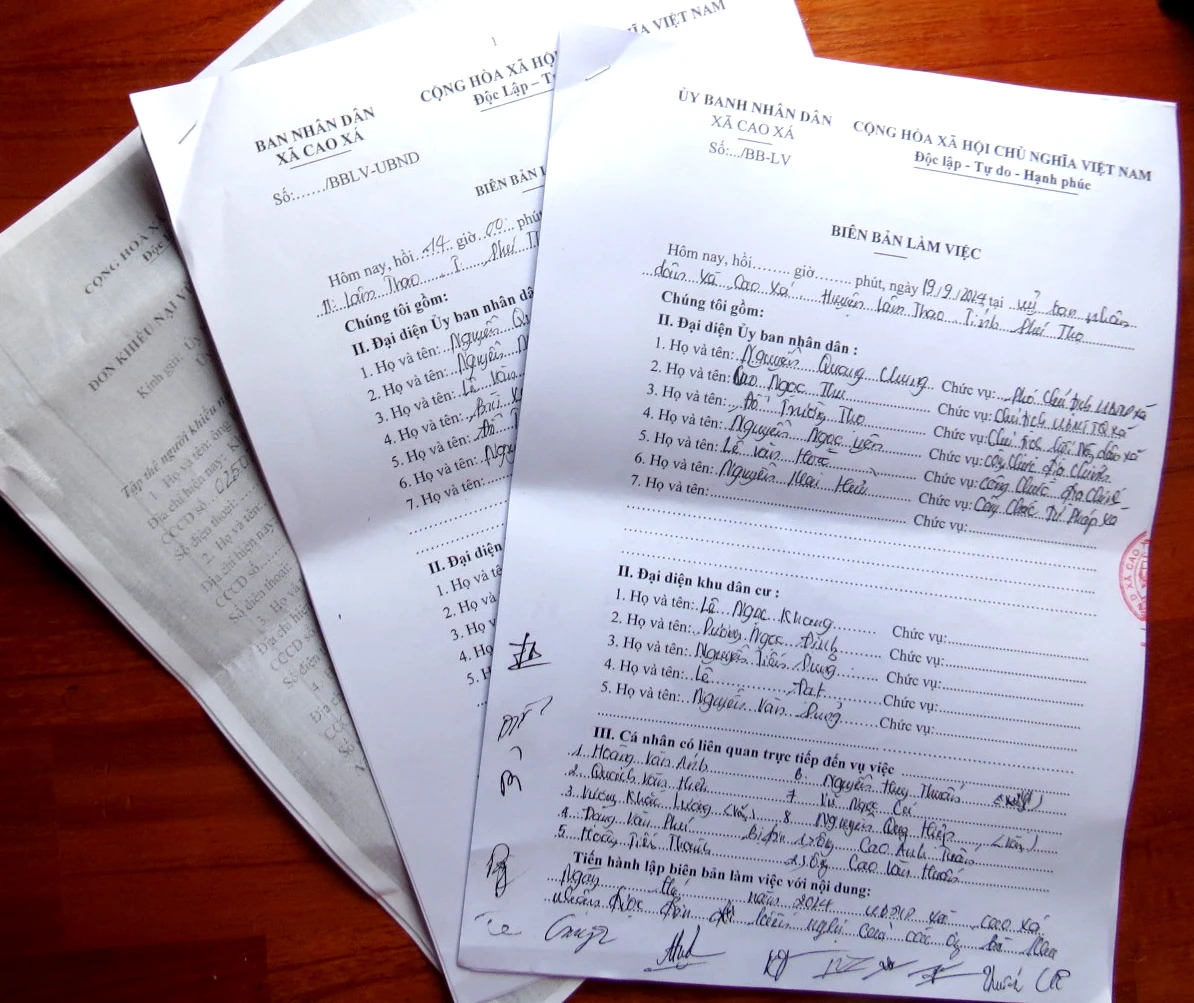 CỘNG HÒA XÃ
ĐƠN KHIẾU NẠI V
Kính gửi:
Tập thể người khiếu n
1. Họ và tên: ông
Địa chỉ hiện nay:
CCCD số:
Số điện thoại:
2. Họ và tên:
Địa chỉ hiện nay
CCCD số
Số điện thoại:
3. Họ và
Địa chỉ hiệ
CCCD số
Số điện
4
Địa c
CCC
Số
1
BAN NHÂN DÂN
XÃ CAO XÁ
Số:....../BBLV-UBND
CỘNG HÒA XÃ HỘI
ĨA VIỆT NAM
Độc Lập – Tự
BIÊN BẢN L
Hôm nay, hồi 14 giờ 00 phút
H. Lâm Thao T. Phú T
Chúng tôi gồm:
II. Đại diện Ủy ban nhân dân
1. Họ và tên: Nguyễn Qu
2. Họ và tên: Nguyễn N
3. Họ và tên: Lê Văn
4. Họ và tên: Bùi X
5. Họ và tên: Đỗ T
6. Họ và tên: Nguy
7. Họ và tên:
II. Đại diện
1. Họ và tê
2. Họ và
3. Họ v
4. Họ
5. H
ỦY BANH NHÂN DÂN
XÃ CAO XÁ
Số:.../BB-LV
CỘNG HÒA XÃ HỘI CHỦ NGHĨA VIỆT NAM
Độc lập - Tự do - Hạnh phúc
BIÊN BẢN LÀM VIỆC
Hôm nay, hồi........ giờ....... phút, ngày 19/9/2024 tại uỷ ban nhân
dân xã Cao Xá Huyện Lâm Thao Tỉnh Phú Thọ
Chúng tôi gồm:
II. Đại diện Ủy ban nhân dân :
1. Họ và tên: Nguyễn Quang Chung Chức vụ: Phó Chủ tịch UBND xã
2. Họ và tên: Cao Ngọc Thu Chức vụ: Chủ tịch UBMTTQ xã
3. Họ và tên: Đỗ Trường Thọ Chức vụ: Chủ tịch hội Nông dân xã
4. Họ và tên: Nguyễn Ngọc Yên Chức vụ: Công Chức địa chính
5. Họ và tên: Lê Văn Chức vụ: Công Chức địa chính
6. Họ và tên: Nguyễn Mai Hiếu Chức vụ: Công Chức Tư Pháp xã
7. Họ và tên: Chức vụ:
II. Đại diện khu dân cư :
1. Họ và tên: Lê Ngọc Khang Chức vụ:
2. Họ và tên: Dương Ngọc Đình Chức vụ:
3. Họ và tên: Nguyễn Tiến Dung Chức vụ:
4. Họ và tên: Lê Đạt Chức vụ:
5. Họ và tên: Nguyễn Văn Dung Chức vụ:
III. Cá nhân có liên quan trực tiếp đến vụ việc
1. Hoàng Văn Anh 6. Nguyễn Huy Thuấn
2. Quách Văn Hiếu 7. Vũ Ngọc
3. Vương Khắc Lương (Vắng) 8. Nguyễn Quang Hiệp
4. Đặng Văn Phú Bị đơn 1. Ông Cao Anh Tuấn
5. Hoàng Tiến Thành 2. Ông Cao Văn
Tiến hành lập biên bản làm việc với nội dung:
Ngày năm 2024 UBND xã Cao Xá
nhận được đơn kiến nghị của các ông bà